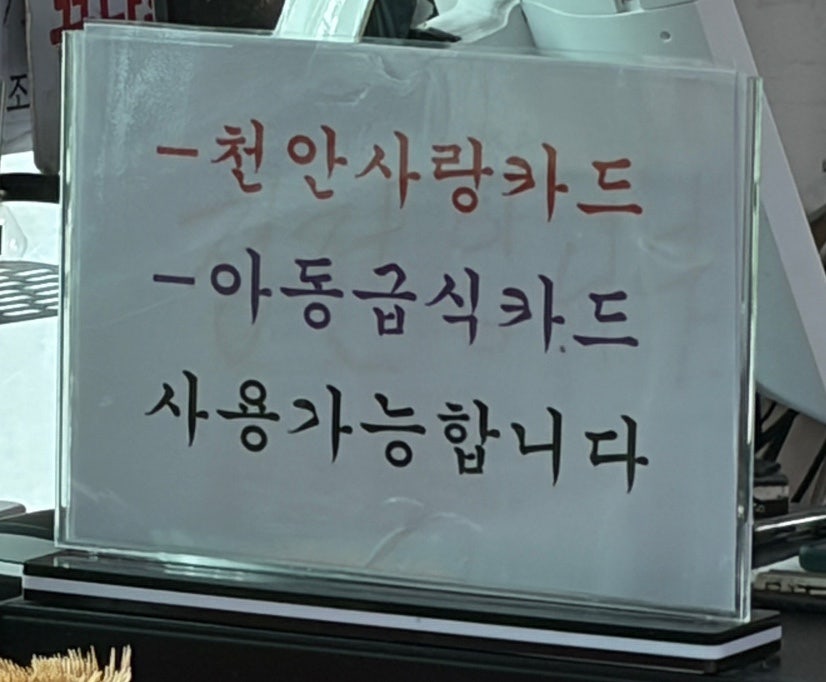 -천안사랑카드
-아동급식카드
사용가능합니다